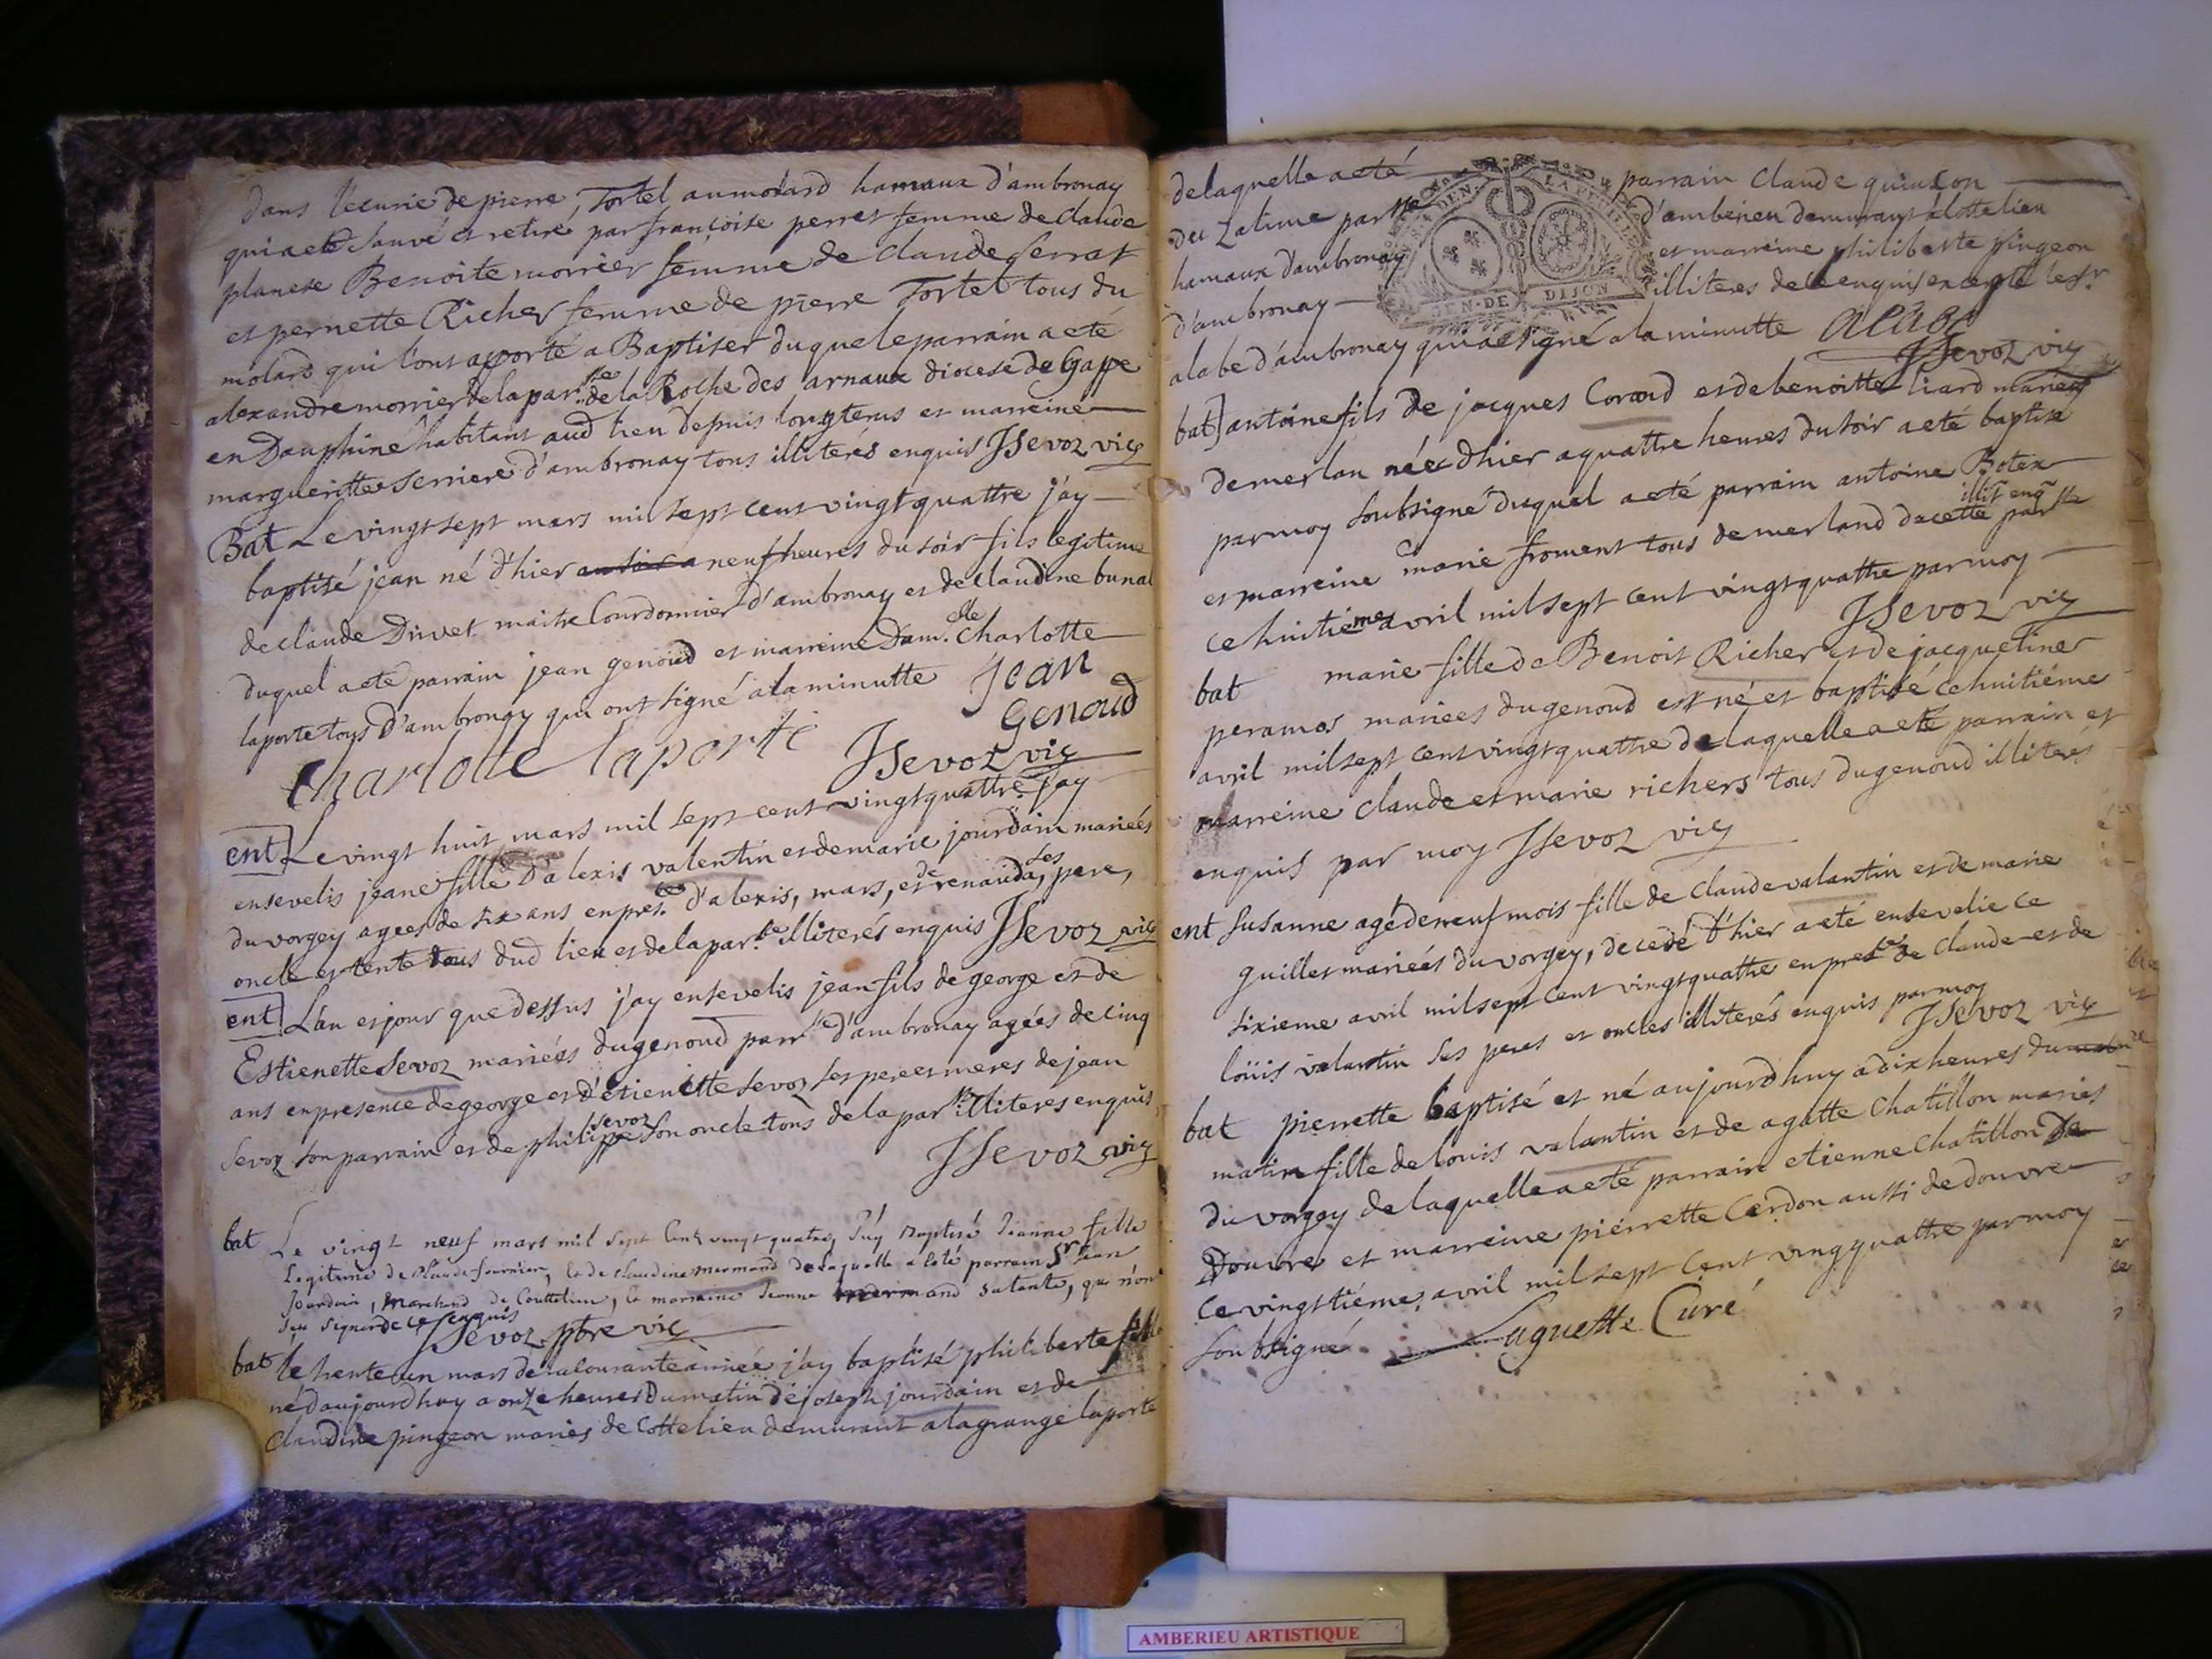 dans l'ecurie de pierre Tortel au molard hamaux d'ambronay
qui a eté sauvé et retiré par françoise perret femme de claude
planere Benoite morrier femme de claude serrat
et pernette Richer femme de pierre Tortel tous du
molard qui l'ont aporté a Baptiser duquel e parrain a eté
alexandre morrier de la par.sse de la Roche des arnaux diocese de Gappe
en Dauphiné habitant aud lieu depuis longtems et marreine
margueritte serriere d'ambronay tous illiterés enquis JSevoz vic
Bat Le vingt sept mars mil sept cent vingt quattre j'ay
baptisé jean né d'hier au soir a neuf heures du soir fils legitime
de claude Druvet maitre Courdonnier d'ambronay et de claudine bunal
duquel a eté parrain jean genoud et marreine Dam.elle Charlotte
laporte tous d'ambronay qui ont signé a la minutte Jean
Genoud
Charlotte laporte JSevoz vic
ent] Le vingt huit mars mil sept cent vingt quattre j'ay
ensevelis jeane fille d'alexis valentin et de marie jourdain mariéés
du vorgey agees de six ans en pres.ce d'alexis, mars, et de renauda, ses pere,
oncle et tente tous dud lieu et de la par.sse illiterés enquis JSevoz vic
ent] L'an et jour que dessus j'ay ensevelis jean fils de george et de
Estienette Sevoz mariéés du genoud parr.sse d'ambronay agéés de cinq
ans en presence de george et d'etienette sevoz ses pere et meres de jean
sevoz son parrain et de philippe sevoz son oncle tous de la par.sse illiteres enquis
JSevoz vic
bat Le vingt neuf mars mil sept cent vingt quatre, j'ay Baptisé Jeanne fille
Legitime de Claude fournier, et de claudine mermand de laquelle a eté parrain Sr Jean
Jourdain, marchand de Couttelieu, et marraine Jeanne mermand sa tante, qui n'ont
sçu signer de ce enquis
JSevoz ptre vic
bat le trente un mars de la courante année j'ay baptisé philiberte fille
né d'aujourd'huy a onze heures du matin de joseph jourdain et de
claudine pingeon mariés de Cottelieu demurant a la grange laporte
de laquelle a eté parrain Claude quinson
du Latime par.sse d'amberieu demurant a Cottelieu
hamaux d'ambronay et marreine philiberte pingeon
d'ambronay illiteres de ce enquis excepté le sr
alabe d'ambronay qui a signé a la minutte Alabe
JSevoz vic
bat] antoine fils de jacques Corand et de benoitte liard mariéés
de merlan née d'hier a quattre heures du soir a eté baptisé
par moy soubsigné duquel a eté parrain antoine Botex
et marreine marie froment tous de merland de cette par.sse illit enq
ce huitiéme avril mil sept cent vingt quattre par moy
JSevoz vic
bat marie fille de Benoit Richer et de jacqueliner
peramos mariées du genoud est né et baptisé ce huitiéme
avril mil sept cent vingt quattre de laquelle a eté parrain et
marreine claude et marie richers tous du genoud illiterés
enquis par moy JSevoz vic
ent susanne agé de neuf mois fille de claude valantin et de marie
guillet mariéés du vorgey, decedé d'hier a eté ensevelie ce
sixieme avril mil sept cent vingt quattre en pres.ce de claude et de
loüis valantin ses peres et oncles illiterés enquis par moy
JSevoz vic
bat pierrette baptisé et né aujourd'huy a dix heures du
matin fille de louis valantin et de agatte Chatillon mariés
du vorgey de laquelle a eté parrain etienne Chatillon De
Douvre et marreine pierrette Cerdon aussi de douvre
ce vingtiéme avril mil sept cent vingt quattre par moy
soubsigné Luguette Curé
GEN. DE DIJON
AMBERIEU ARTISTIQUE